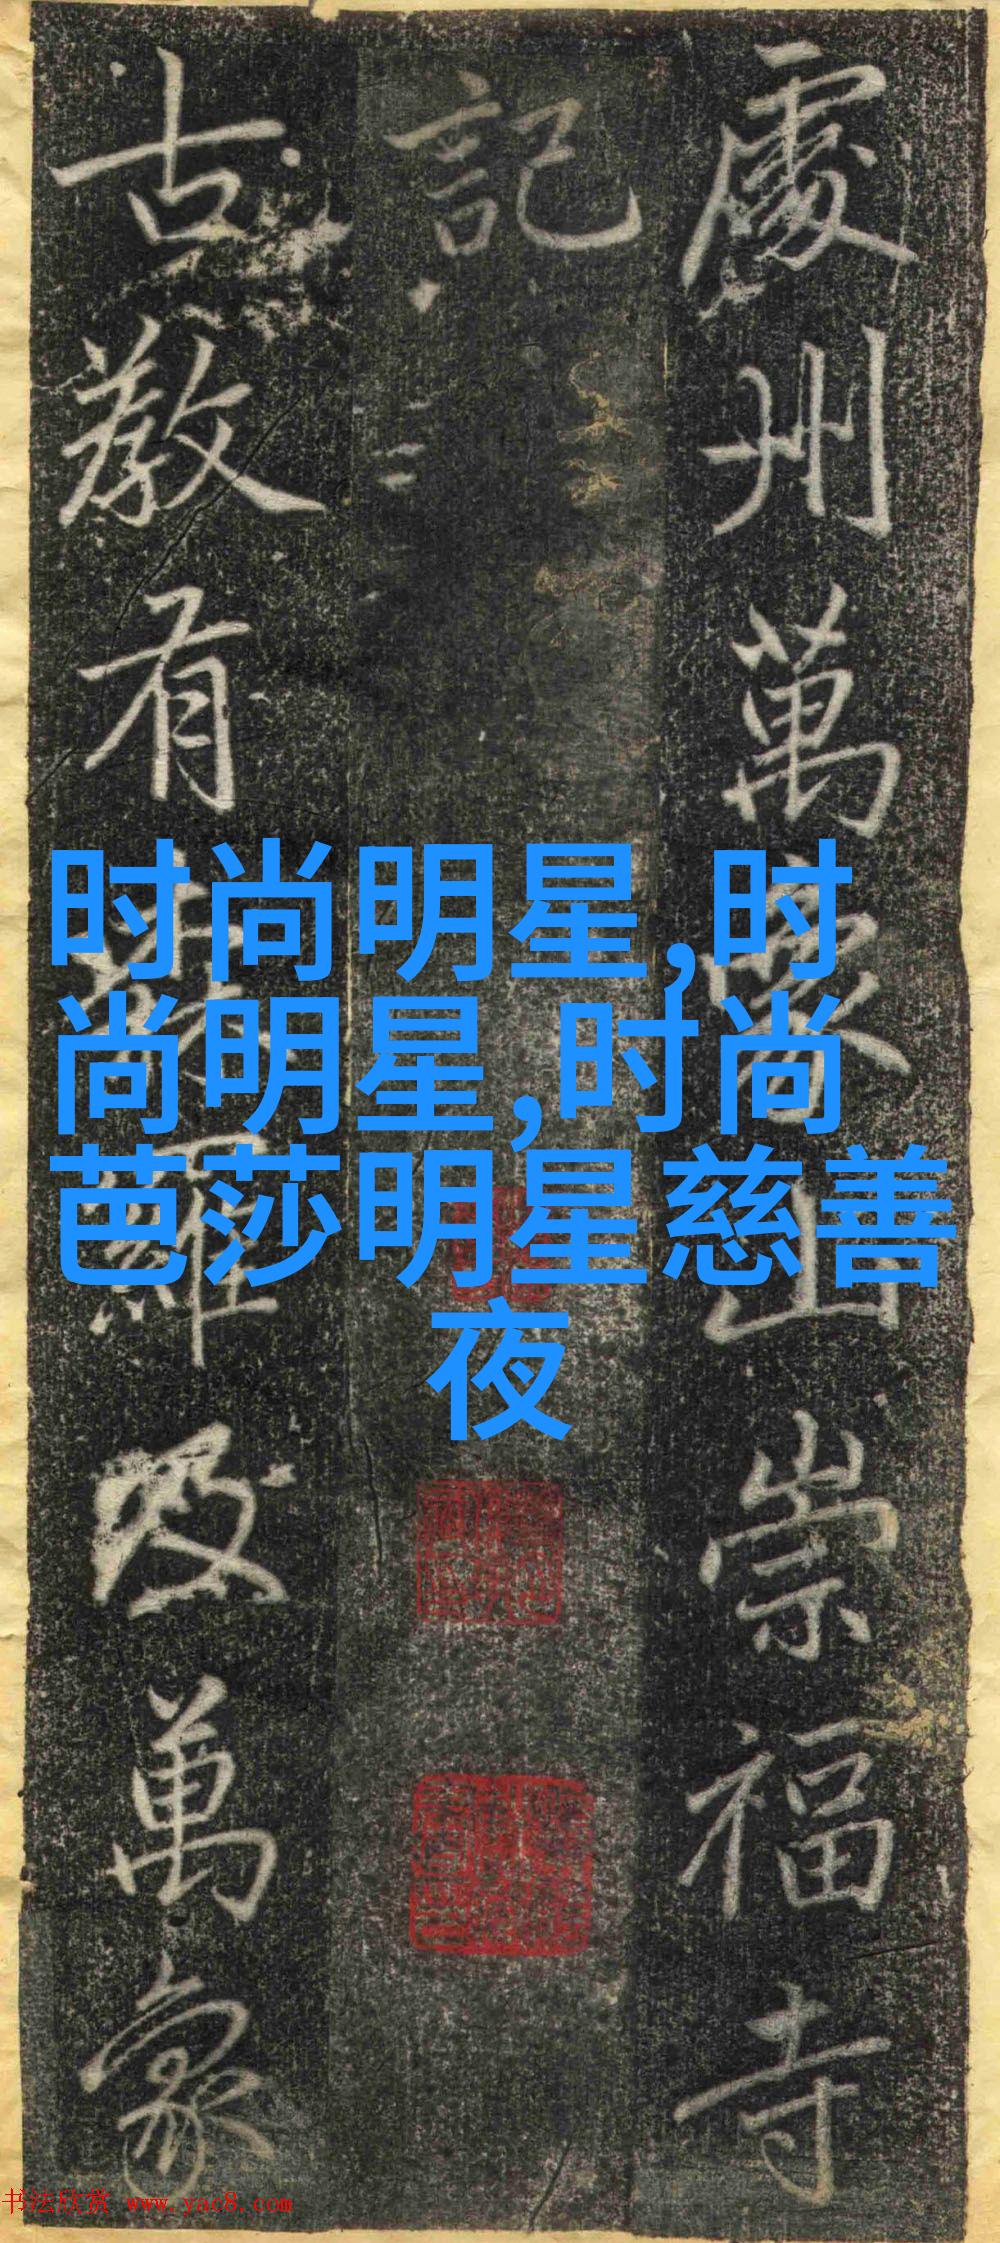 處州萬象山崇福寺
記
古教有羅及萬象
时尚明星,时
尚明星,时尚
芭莎明星慈善
夜
书法欣赏 www.yac8.com